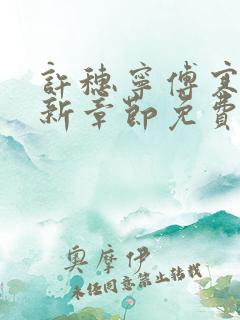 許穗寧傅寒
新章節免費
奧摩伊
未經同意禁止轉載